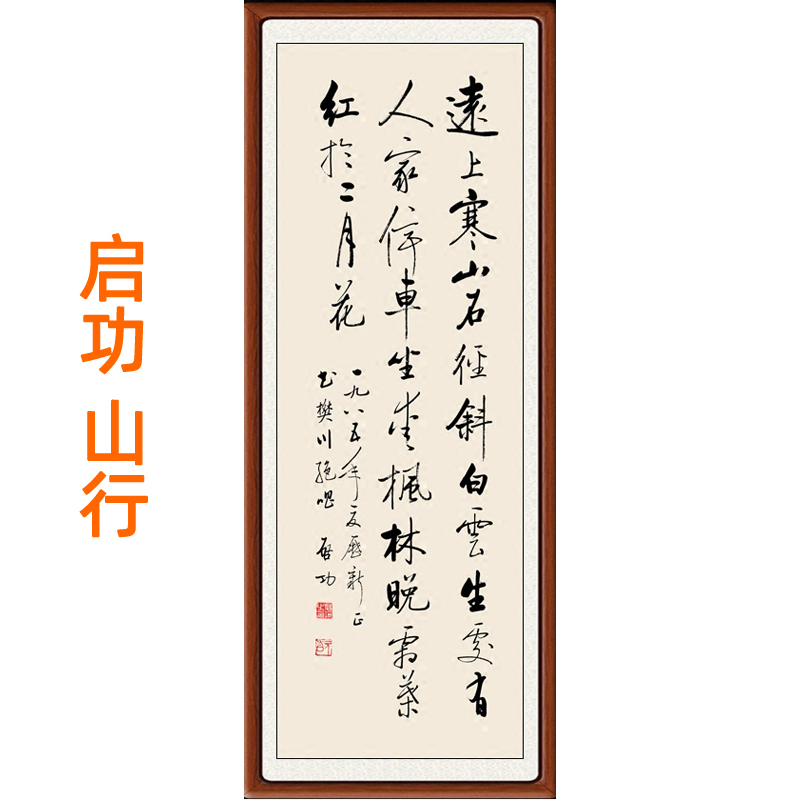 启功 山行
遠上寒山石徑斜白雲生處有
人家停車坐愛楓林晚霜葉
紅於二月花
一九八五年夏歷新正
书樊川絕唱 启功